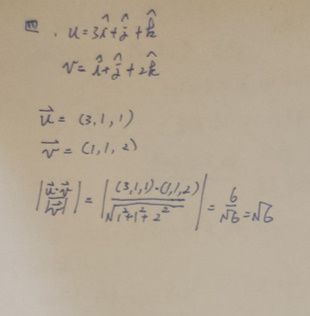 四. u=3î+ĵ+k̂
v=î+ĵ+2k̂
u⃗=(3,1,1)
v⃗=(1,1,2)
|u⃗·v⃗/|v⃗||=|(3,1,1)·(1,1,2)/√(1²+1²+2²)|=6/√6=√6